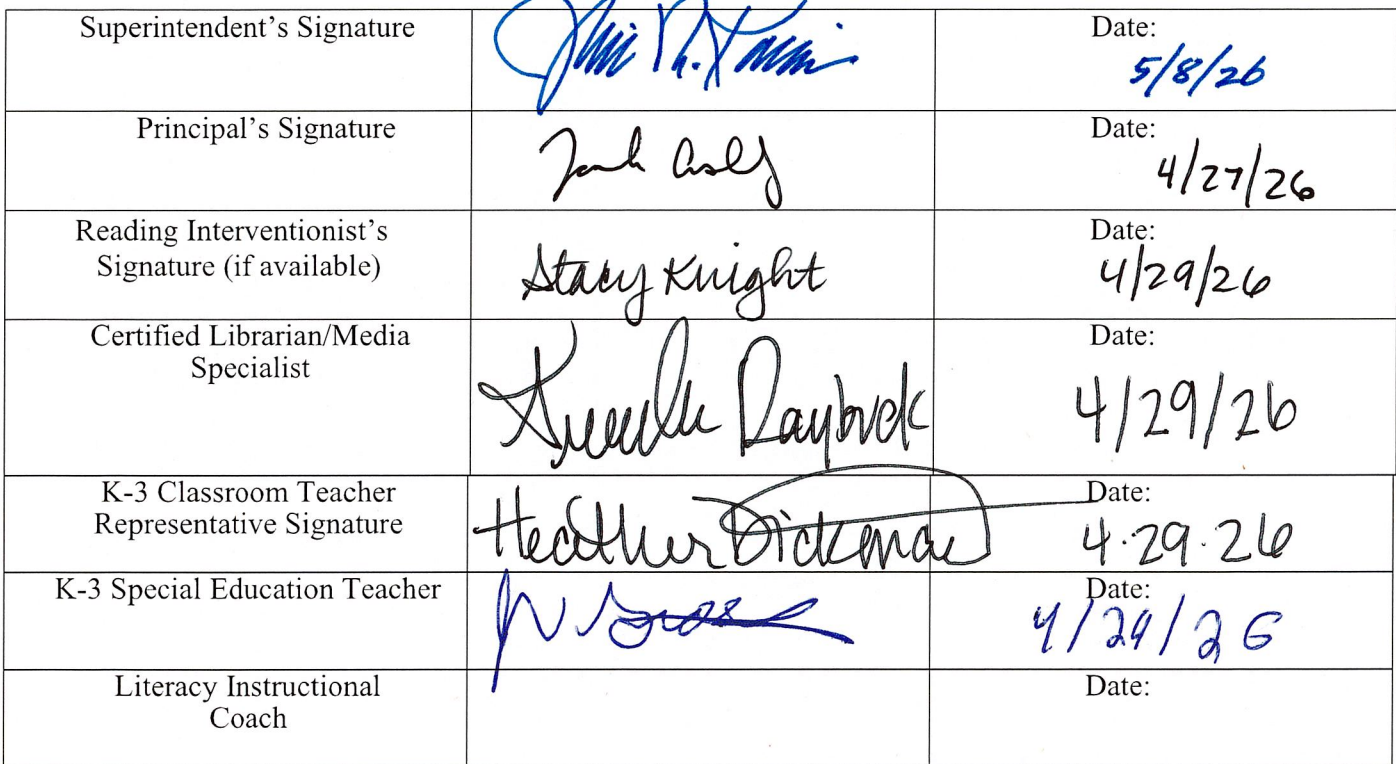 Superintendent's Signature
Date:
5/8/26
Principal's Signature
Date:
4/27/26
Reading Interventionist's
Signature (if available)
Stacy Knight
Date:
4/29/26
Certified Librarian/Media
Specialist
Raybuck
Date:
4/29/26
K-3 Classroom Teacher
Representative Signature
Heather
Date:
4.29.26
K-3 Special Education Teacher
Date:
4/29/26
Literacy Instructional
Coach
Date: